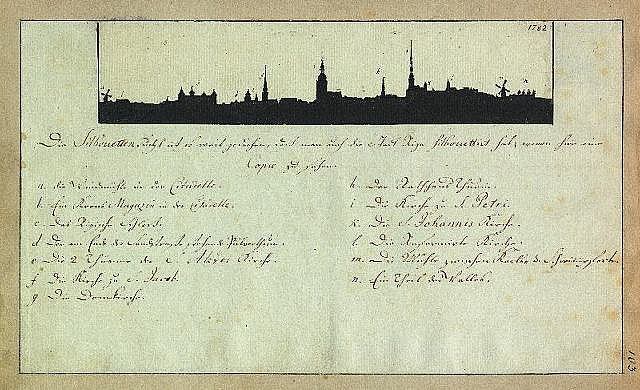 1782
Die Silhouetten sucht ist so weit gediehen, daß man auch die Stadt Riga silhouettirt hat, wovon hier eine
Copie zu sehen.
a. die Windmühle in der Citadelle.
b. Ein Korns Magazin in der Citadelle.
c. Das Rigische Schloß.
d. Der am Ende der Sandstraße stehende Pulverthurm.
e. Die 2 Thürme der Kirche.
f. Die Kirche zu S. Jacob.
g. Die Domkirche.
h. Der Rathhaus Thurm.
i. Die Kirche zu S. Petri.
k. Die S. Johannis Kirche.
l. Die Reformirte Kirche.
m. Die Mühle zwischen
n. Ein Theil des Walles.
103